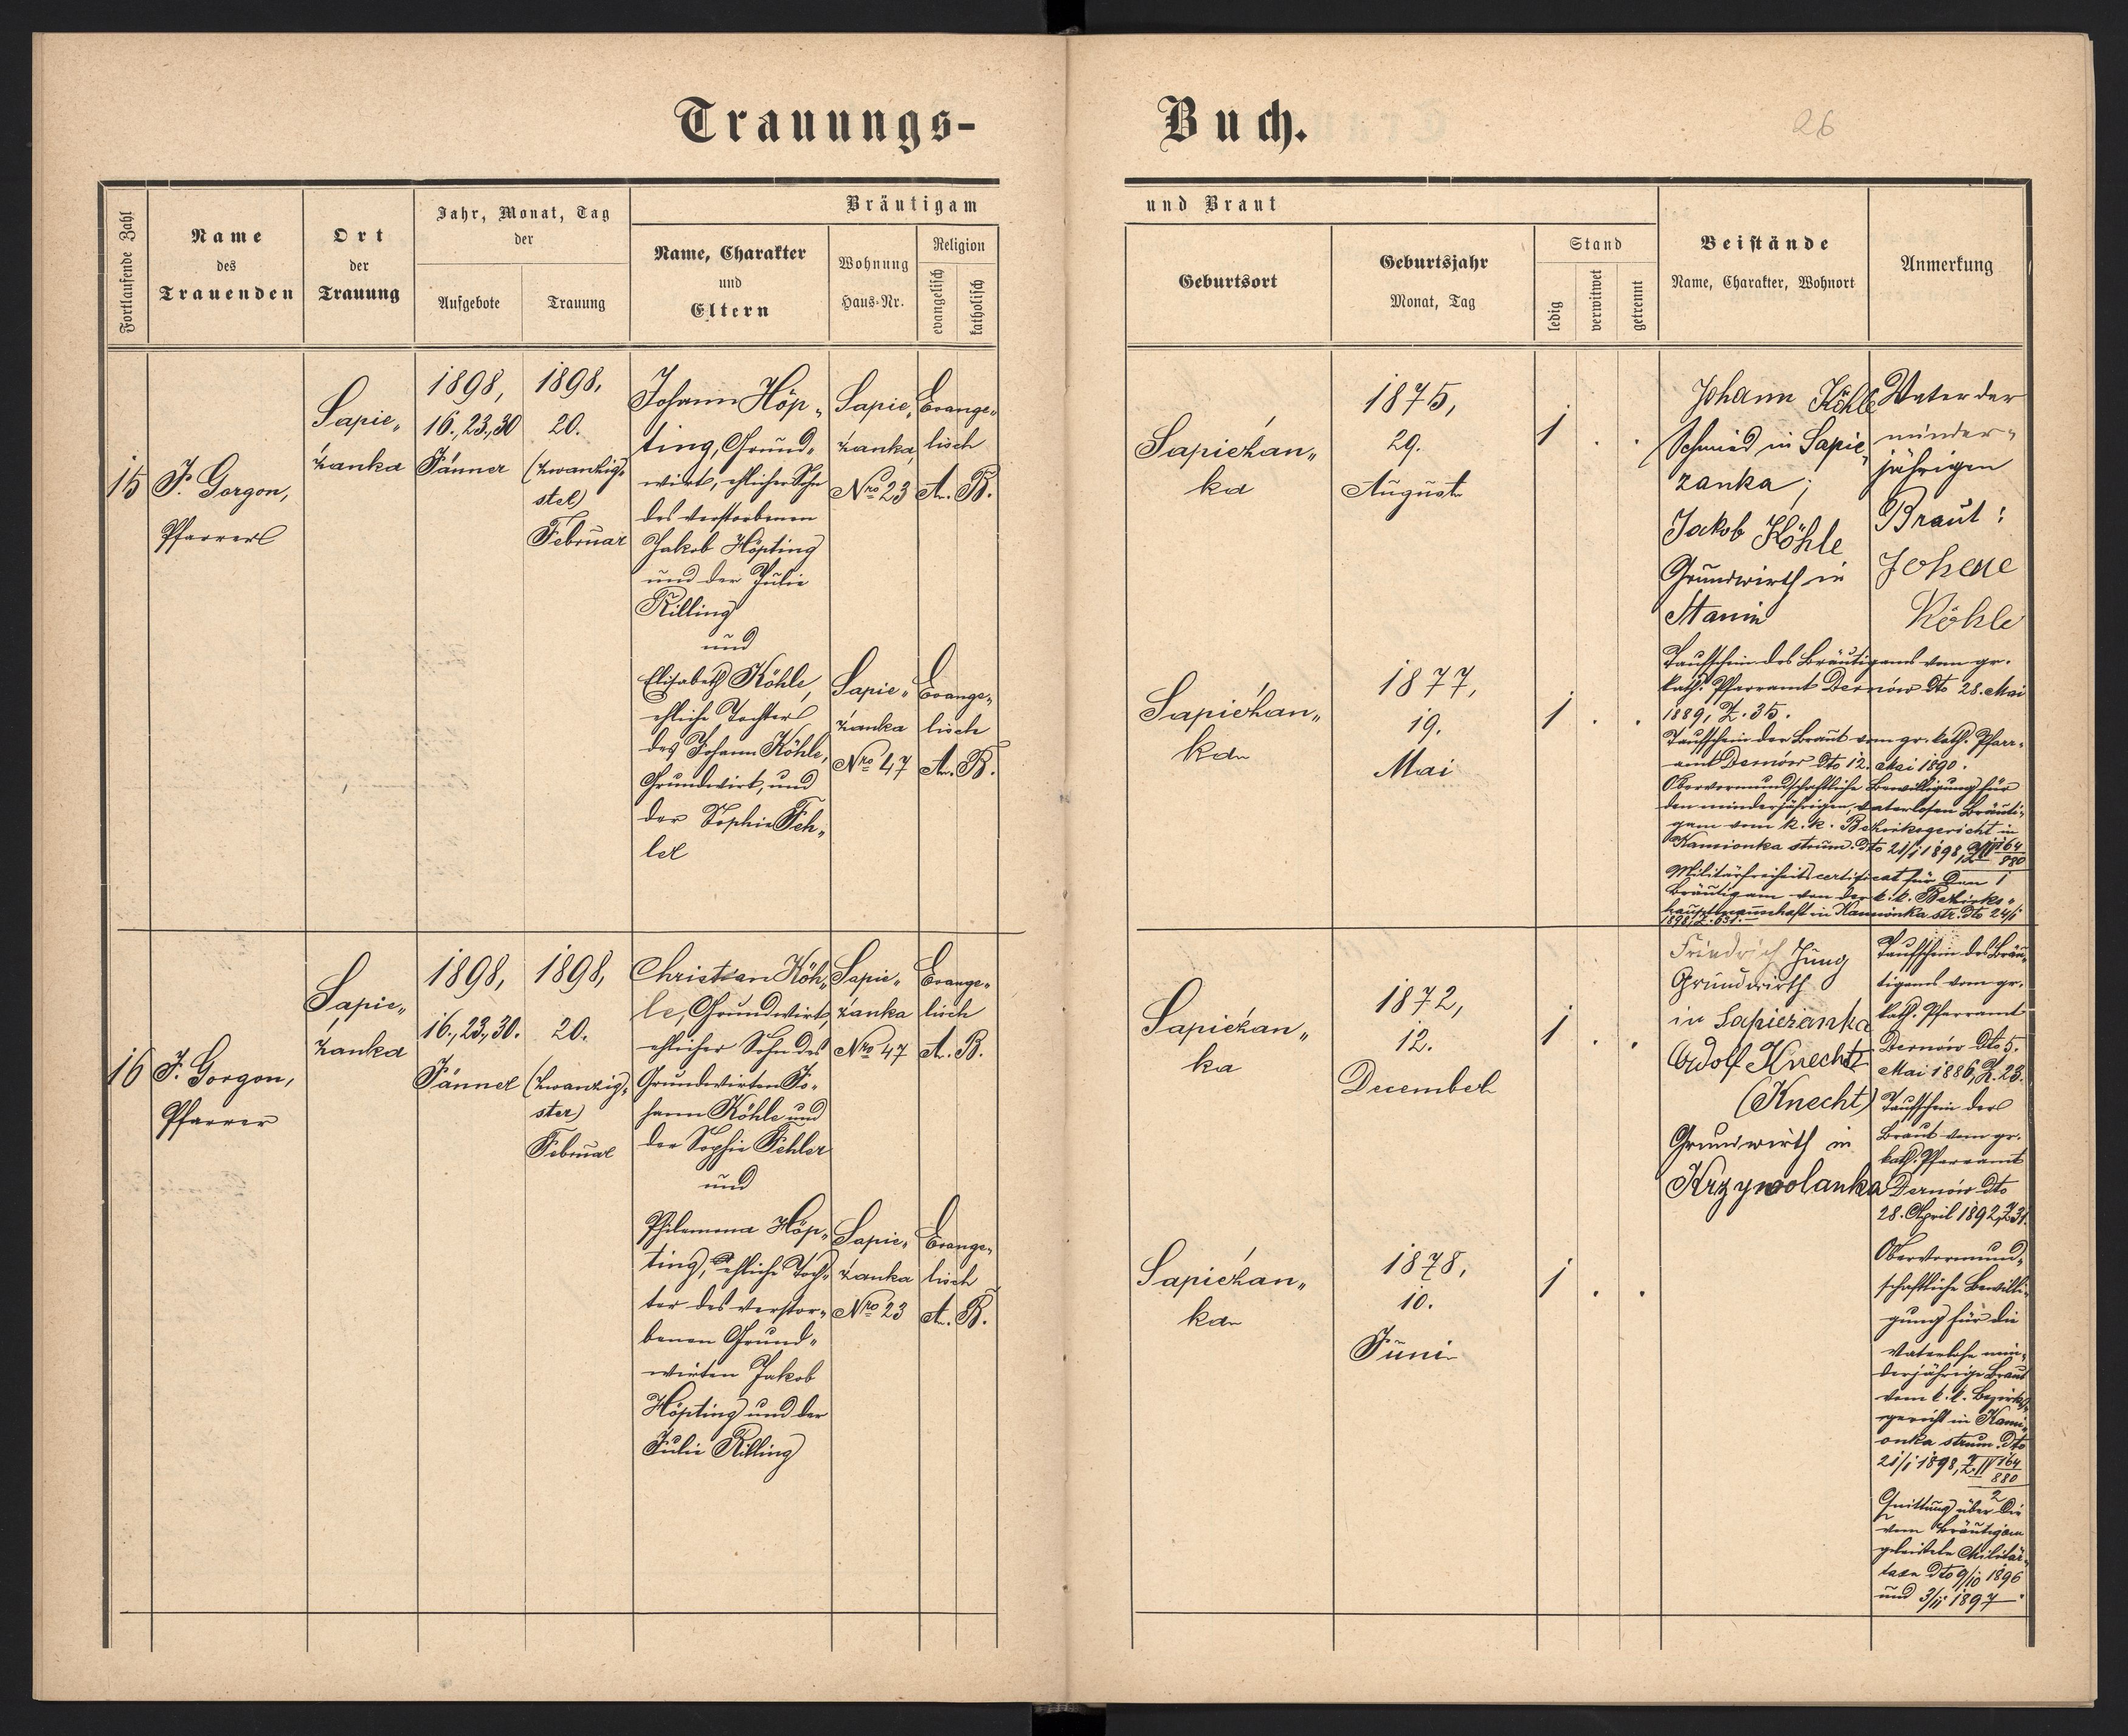 Trauungs-
Buch.
26
Fortlaufende Zahl
Name
des
Trauenden
Ort
der
Trauung
Jahr, Monat, Tag
der
Aufgebote
Trauung
Bräutigam
Name, Charakter
und
Eltern
Wohnung
Haus-Nr.
Religion
evangelisch
katholisch
und Braut
Geburtsort
Geburtsjahr
Monat, Tag
Stand
ledig
verwitwet
getrennt
Beistände
Name, Charakter, Wohnort
Anmerkung
15
J. Gorgon,
Pfarrer
Sapie„
żanka
1898,
16., 23., 30
Jänner
1898,
20.
(zwanzig„
ster)
Februar
Johann Höp„
ting, Grund„
wirt, ehlicher Sohn
des verstorbenen
Jakob Höpting
und der Julie
Rilling
und
Elisabeth Köhle,
ehliche Tochter
des Johann Köhle,
Grundwirt, und
der Sophie Feh„
ler
Sapie„
żanka,
Nro 23
Evange„
lisch
A. B.
Sapie„
żanka
Nro 47
Evange„
lisch
A. B.
Sapieżan„
ka
1875,
29.
August
1 . .
Sapieżan„
ka
1877,
19.
Mai
1 . .
Johann Köhle
Schmied in Sapie„
zanka;
Jakob Köhle
Grundwirth in
Stanin
Vater der
minder„
jährigen
Braut:
Johene
Köhle
Taufschein des Bräutigams vom gr.
kath. Pfarramt Dernów dto 28. Mai
1889, Z. 35.
Taufschein der Braut vom gr. kath. Pfarr„
amt Dernów dto 12. Mai 1890.
Obervormundschaftliche Bewilligung für
den minderjährigen, vaterlosen Bräuti„
gam vom k. k. Bezirksgericht in
Kamionka strum. dto 21/1 1898,
Militärfreiheitscertificat für den
Bräutigam von der k. k. Bezirks„
hauptmannschaft in Kamionka str. dto 24/1
1898, Z. 631.
16
J. Gorgon,
Pfarrer
Sapie„
żanka
1898,
16., 23., 30.
Jänner
1898,
20.
(zwanzig„
ster)
Februar
Christian Köh„
le, Grundwirt,
ehlicher Sohn des
Grundwirten Jo„
hann Köhle und
der Sophie Fehler
und
Philomena Höp„
ting, ehliche Toch„
ter des verstor„
benen Grund„
wirten Jakob
Höpting und der
Julie Rilling
Sapie„
żanka
Nro 47
Evange„
lisch
A. B.
Sapie„
żanka
Nro 23
Evange„
lisch
A. B.
Sapieżan„
ka
1872,
12.
December
1 . .
Sapieżan„
ka
1878,
10.
Juni
1 . .
Friedrich Jung
Grundwirth
in Sapiezanka
Adolf Knecht
(Knecht)
Grundwirth in
Krzywolanka
Taufschein des Bräu„
tigams vom gr.
kath. Pfarramt
Dernów dto 5.
Mai 1886, Z. 23.
Taufschein der
Braut vom gr.
kath. Pfarramt
Dernów dto
28. April 1892, Z. 31.
Obervormund„
schaftliche Bewilli„
gung für die
vaterlose min„
derjährige Braut
vom k. k. Bezirks„
gericht in Kami„
onka strum. dto
21/1 1898, Z. IV 164
880
2
Quittung über die
vom Bräutigam
geleistete Militär„
taxe dto 9/10 1896
und 3/11 1897.